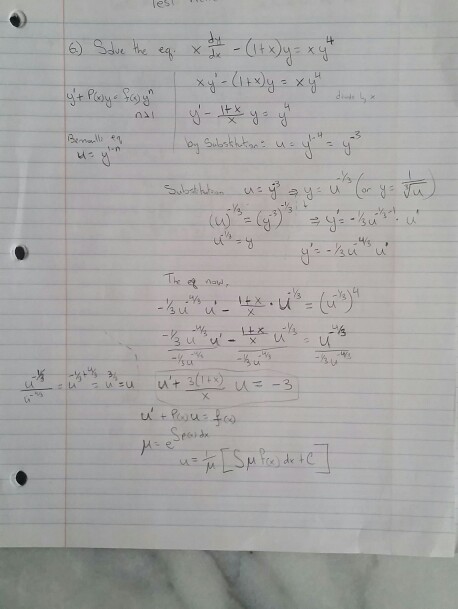 6.) Solve the eq. x dy/dx - (1+x)y = xy^4
xy' - (1+x)y = xy^4
divide by x
y' + P(x)y = f(x)y^n
n≥1
y' - (1+x)/x y = y^4
Bernoulli eq
u = y^(1-n)
by Substitution: u = y^(1-4) = y^-3
Substitution u = y^-3 ⇒ y = u^(-1/3) (or y = 1/∛u)
(u)^(-1/3) = (y^-3)^(-1/3) ⇒ y' = -1/3 u^(-1/3-1) · u'
u^(-1/3) = y
y' = -1/3 u^(-4/3) u'
The eq now,
-1/3 u^(-4/3) u' - (1+x)/x · u^(-1/3) = (u^(-1/3))^4
(-1/3 u^(-4/3) u')/(-1/3 u^(-4/3)) - ((1+x)/x u^(-1/3))/(-1/3 u^(-4/3)) = u^(-4/3)/(-1/3 u^(-4/3))
u^(-1/3)/u^(-4/3) = u^(-1/3+4/3) = u^(3/3) = u
u' + 3(1+x)/x u = -3
u' + P(x)u = f(x)
μ = e^∫p(x)dx
u = 1/μ [∫μ f(x) dx + C]